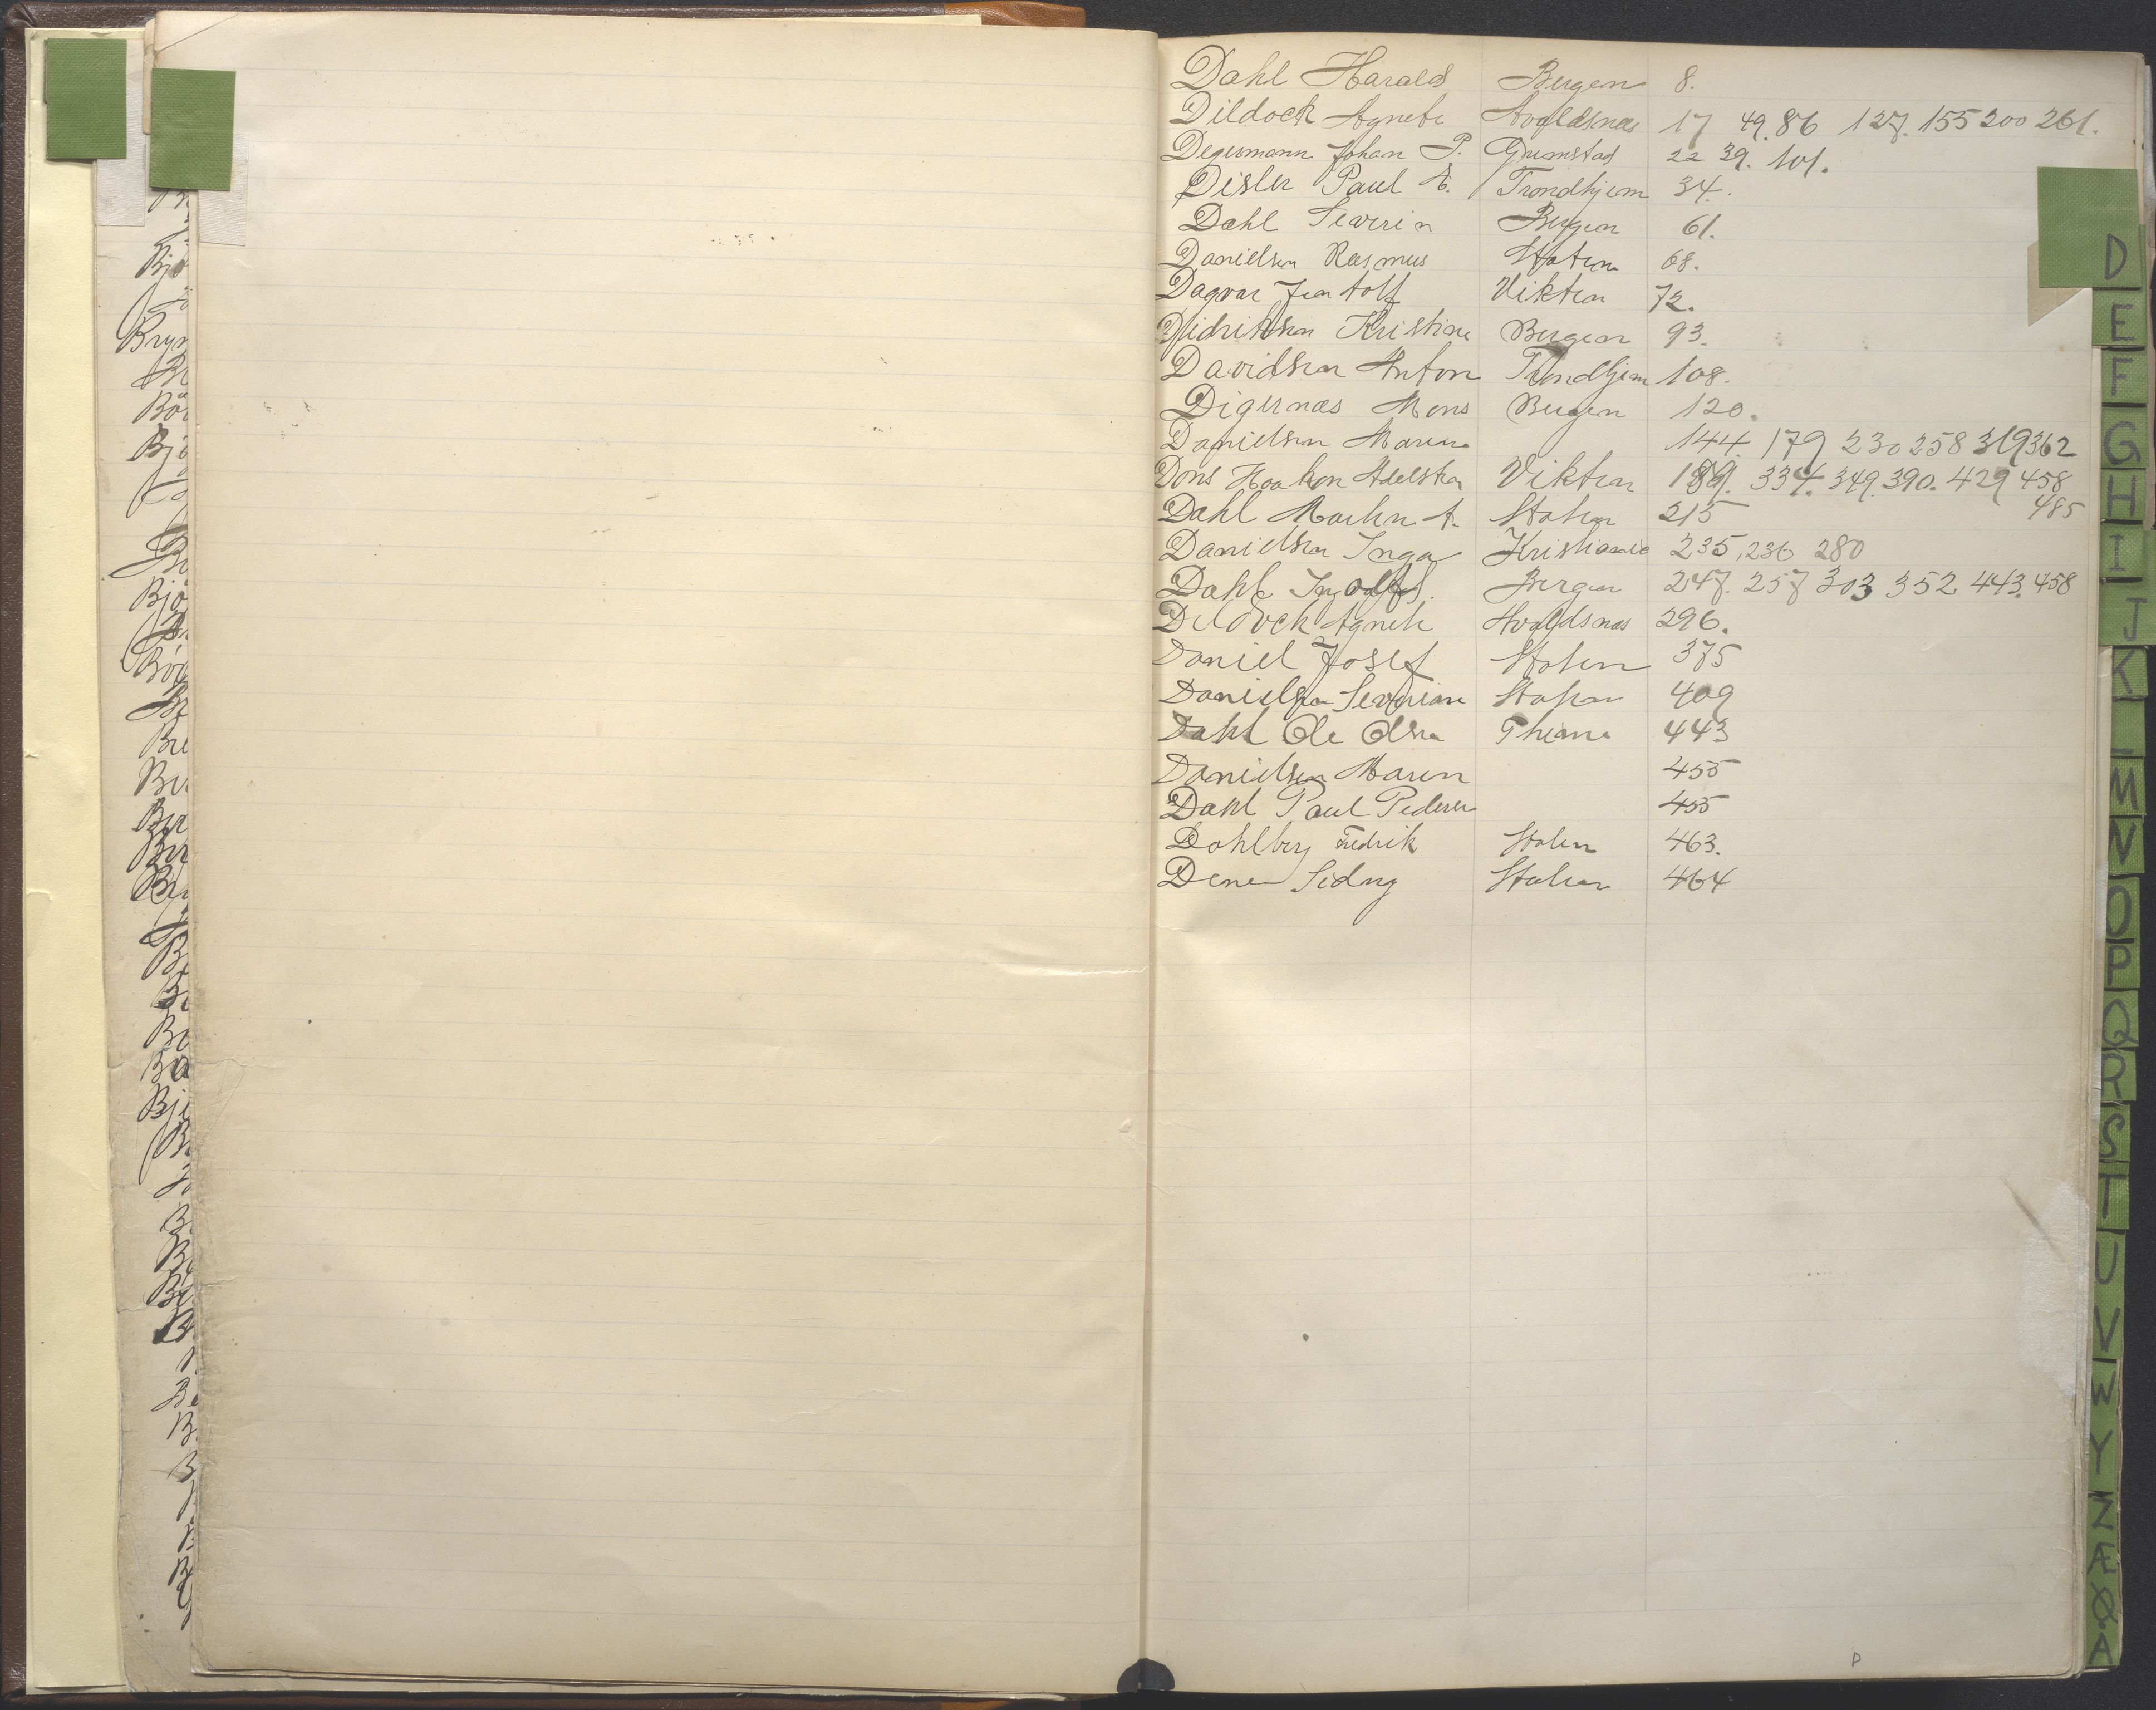 Dahl Harald Bergen 8.
Dildock Agnete Avaldsnæs 17 49. 86 127. 155 200 261.
Degermann Johan P. Grimstad 22 39. 101.
Disler Paul A. Trondhjem 34.
Dahl Severin Bergen 61.
Danielsen Rasmus Staten 68.
Dagvar Jentoft Vikten 72.
Didriksen Kristine Bergen 93.
Davidsen Anton Trondhjem 108.
Digernæs Mons Bergen 120.
Danielsen Maren 144. 179 230 258 319 362
Dons Haakon Adelsten Vikten 189. 334. 349. 390. 429 458
485
Dahl Martin A. Staten 215
Danielsen Inga Kristiania 235, 236 280
Dahl Ingvald Bergen 247. 257 303 352 443. 458
Dildock Agnete Avaldsnæs 296.
Daniel Josef Staten 375
Danielsen Severine Staten 409
Dahl Ole Olsen 443
Danielsen Maren 455
Dahl Paul Pedersen 455
Dahlberg Fredrik Staten 463.
Staten 464
D
E
F
G
H
I
J
K
M
N
O
P
Q
R
S
T
U
V
W
Y
Z
Æ
Ø
Å
D